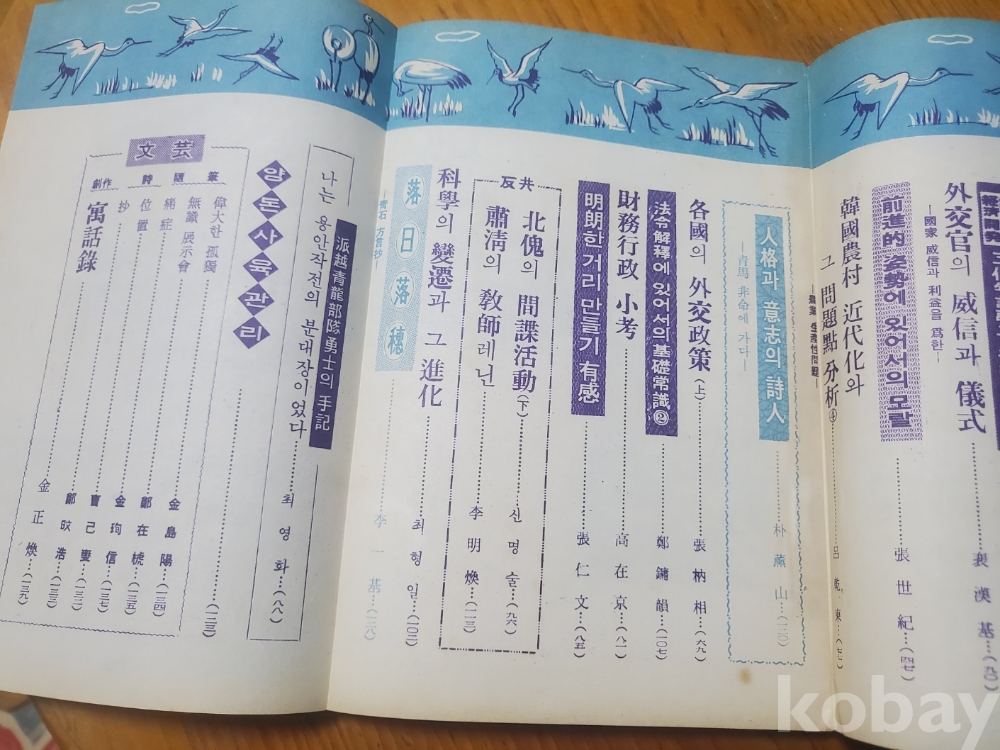 外交官의 威信과 儀式
─國家 威信과 利益을 爲한─
裵漢基…(九〇)
前進的 姿勢에 있어서의 모랄
張世紀…(四七)
韓國農村 近代化와
그 問題點 分析④
人格과 意志의 詩人
─靑馬 非命에 가다─
各國의 外交政策(上)
張柄相…(六九)
法令解釋에 있어서의 基礎常識②
鄭鏞韻…(一〇七)
財務行政 小考
高在京…(八一)
明朗한 거리 만들기 有感
張仁文…(八五)
反共
北傀의 間諜活動(下)
신명술…(九六)
肅淸의 敎師 레닌
李明煥…(一一三)
科學의 變遷과 그 進化
최형일…(一〇二)
落日落穗
李一基…(一二八)
派越靑龍部隊勇士의 手記
나는 용안작전의 분대장이었다
최영화…(八八)
양돈사육관리
(一二三)
文芸
隨筆
偉大한 孤獨
無識 展示會
痛症
金島陽…(一三四)
詩
位置
鄭在虎…(一三五)
抄
金珣信…(一三七)
創作
寓話錄
金正煥…(一三九)
kobay